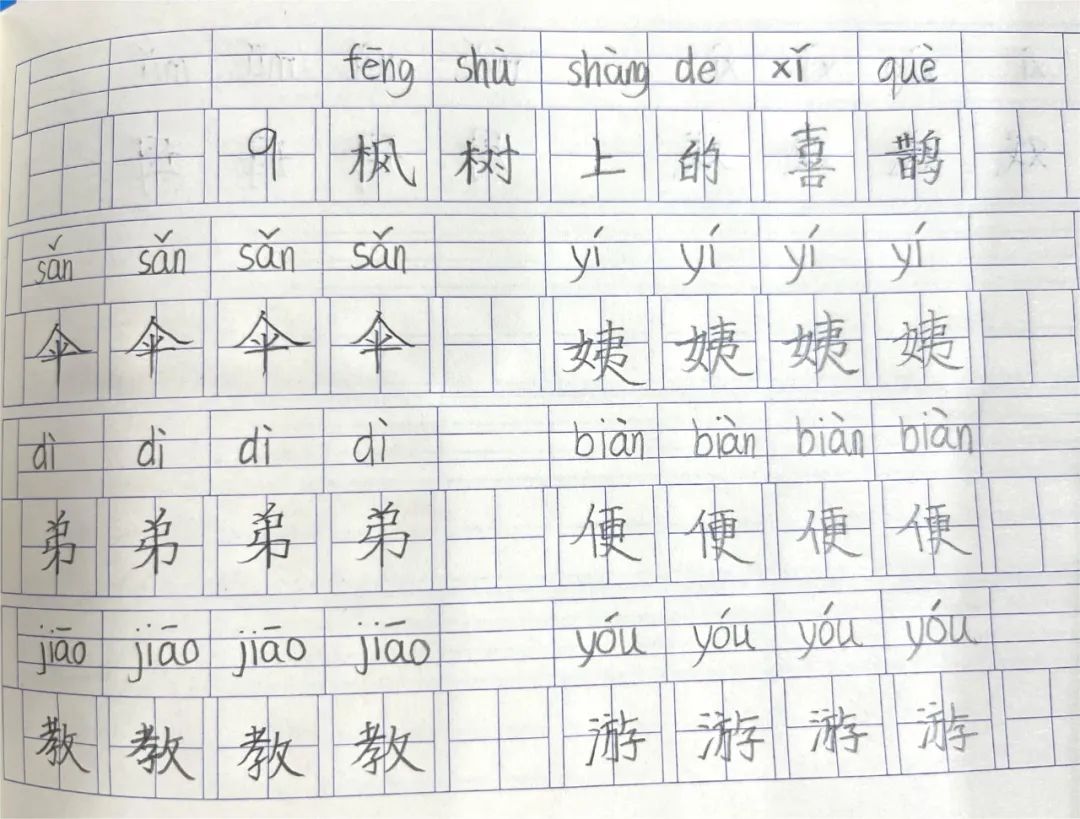 fēng shù shàng de xǐ què
9 枫 树 上 的 喜 鹊
sǎn sǎn sǎn sǎn yí yí yí yí
伞 伞 伞 伞 姨 姨 姨 姨
dì dì dì dì biàn biàn biàn biàn
弟 弟 弟 弟 便 便 便 便
jiāo jiāo jiāo jiāo yóu yóu yóu yóu
教 教 教 教 游 游 游 游